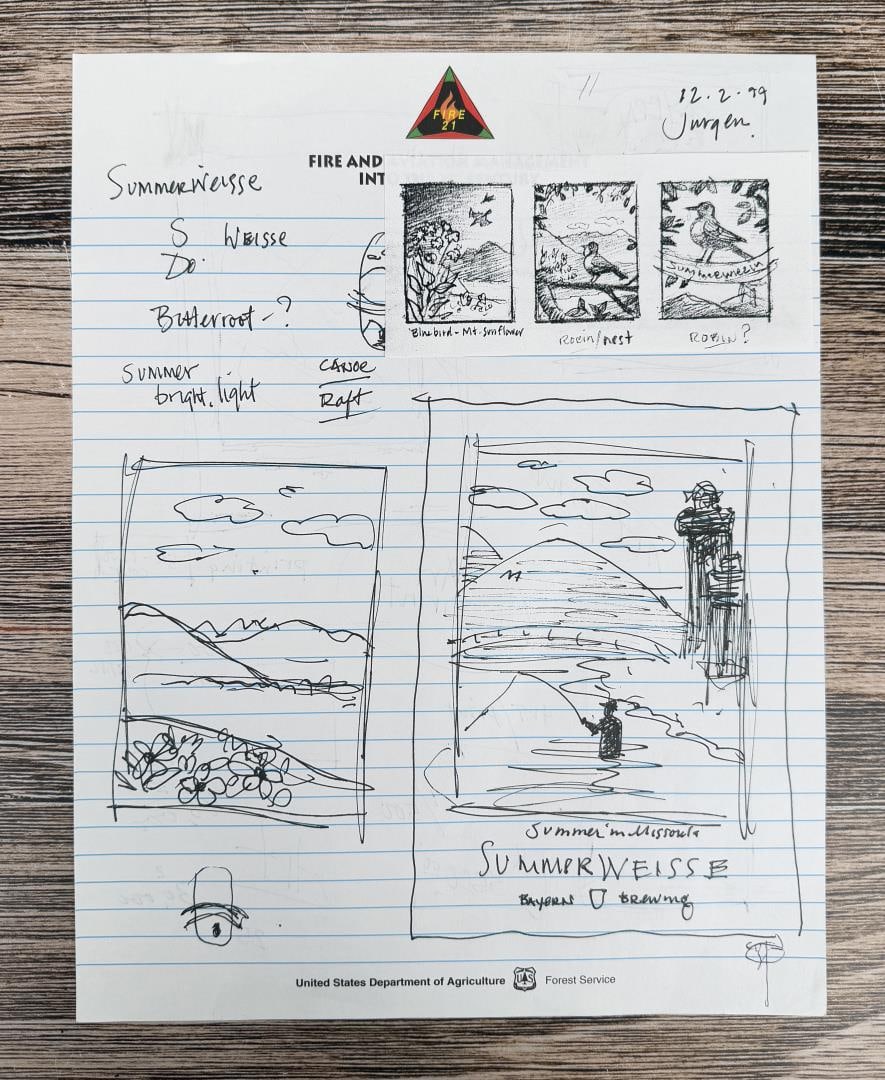 12.2.99
Jurgen
FIRE 21
FIRE AND
INT
SummerWeisse
S Weisse
Do.
Bitterroot-?
Summer
bright, light
CANOE
Raft
SUMMERWEIZEN
Bluebird - Mt. Sunflower
Robin/nest
ROBIN?
Summer in Missoula
SUMMERWEISSE
BAYERN BREWING
United States Department of Agriculture UAS Forest Service